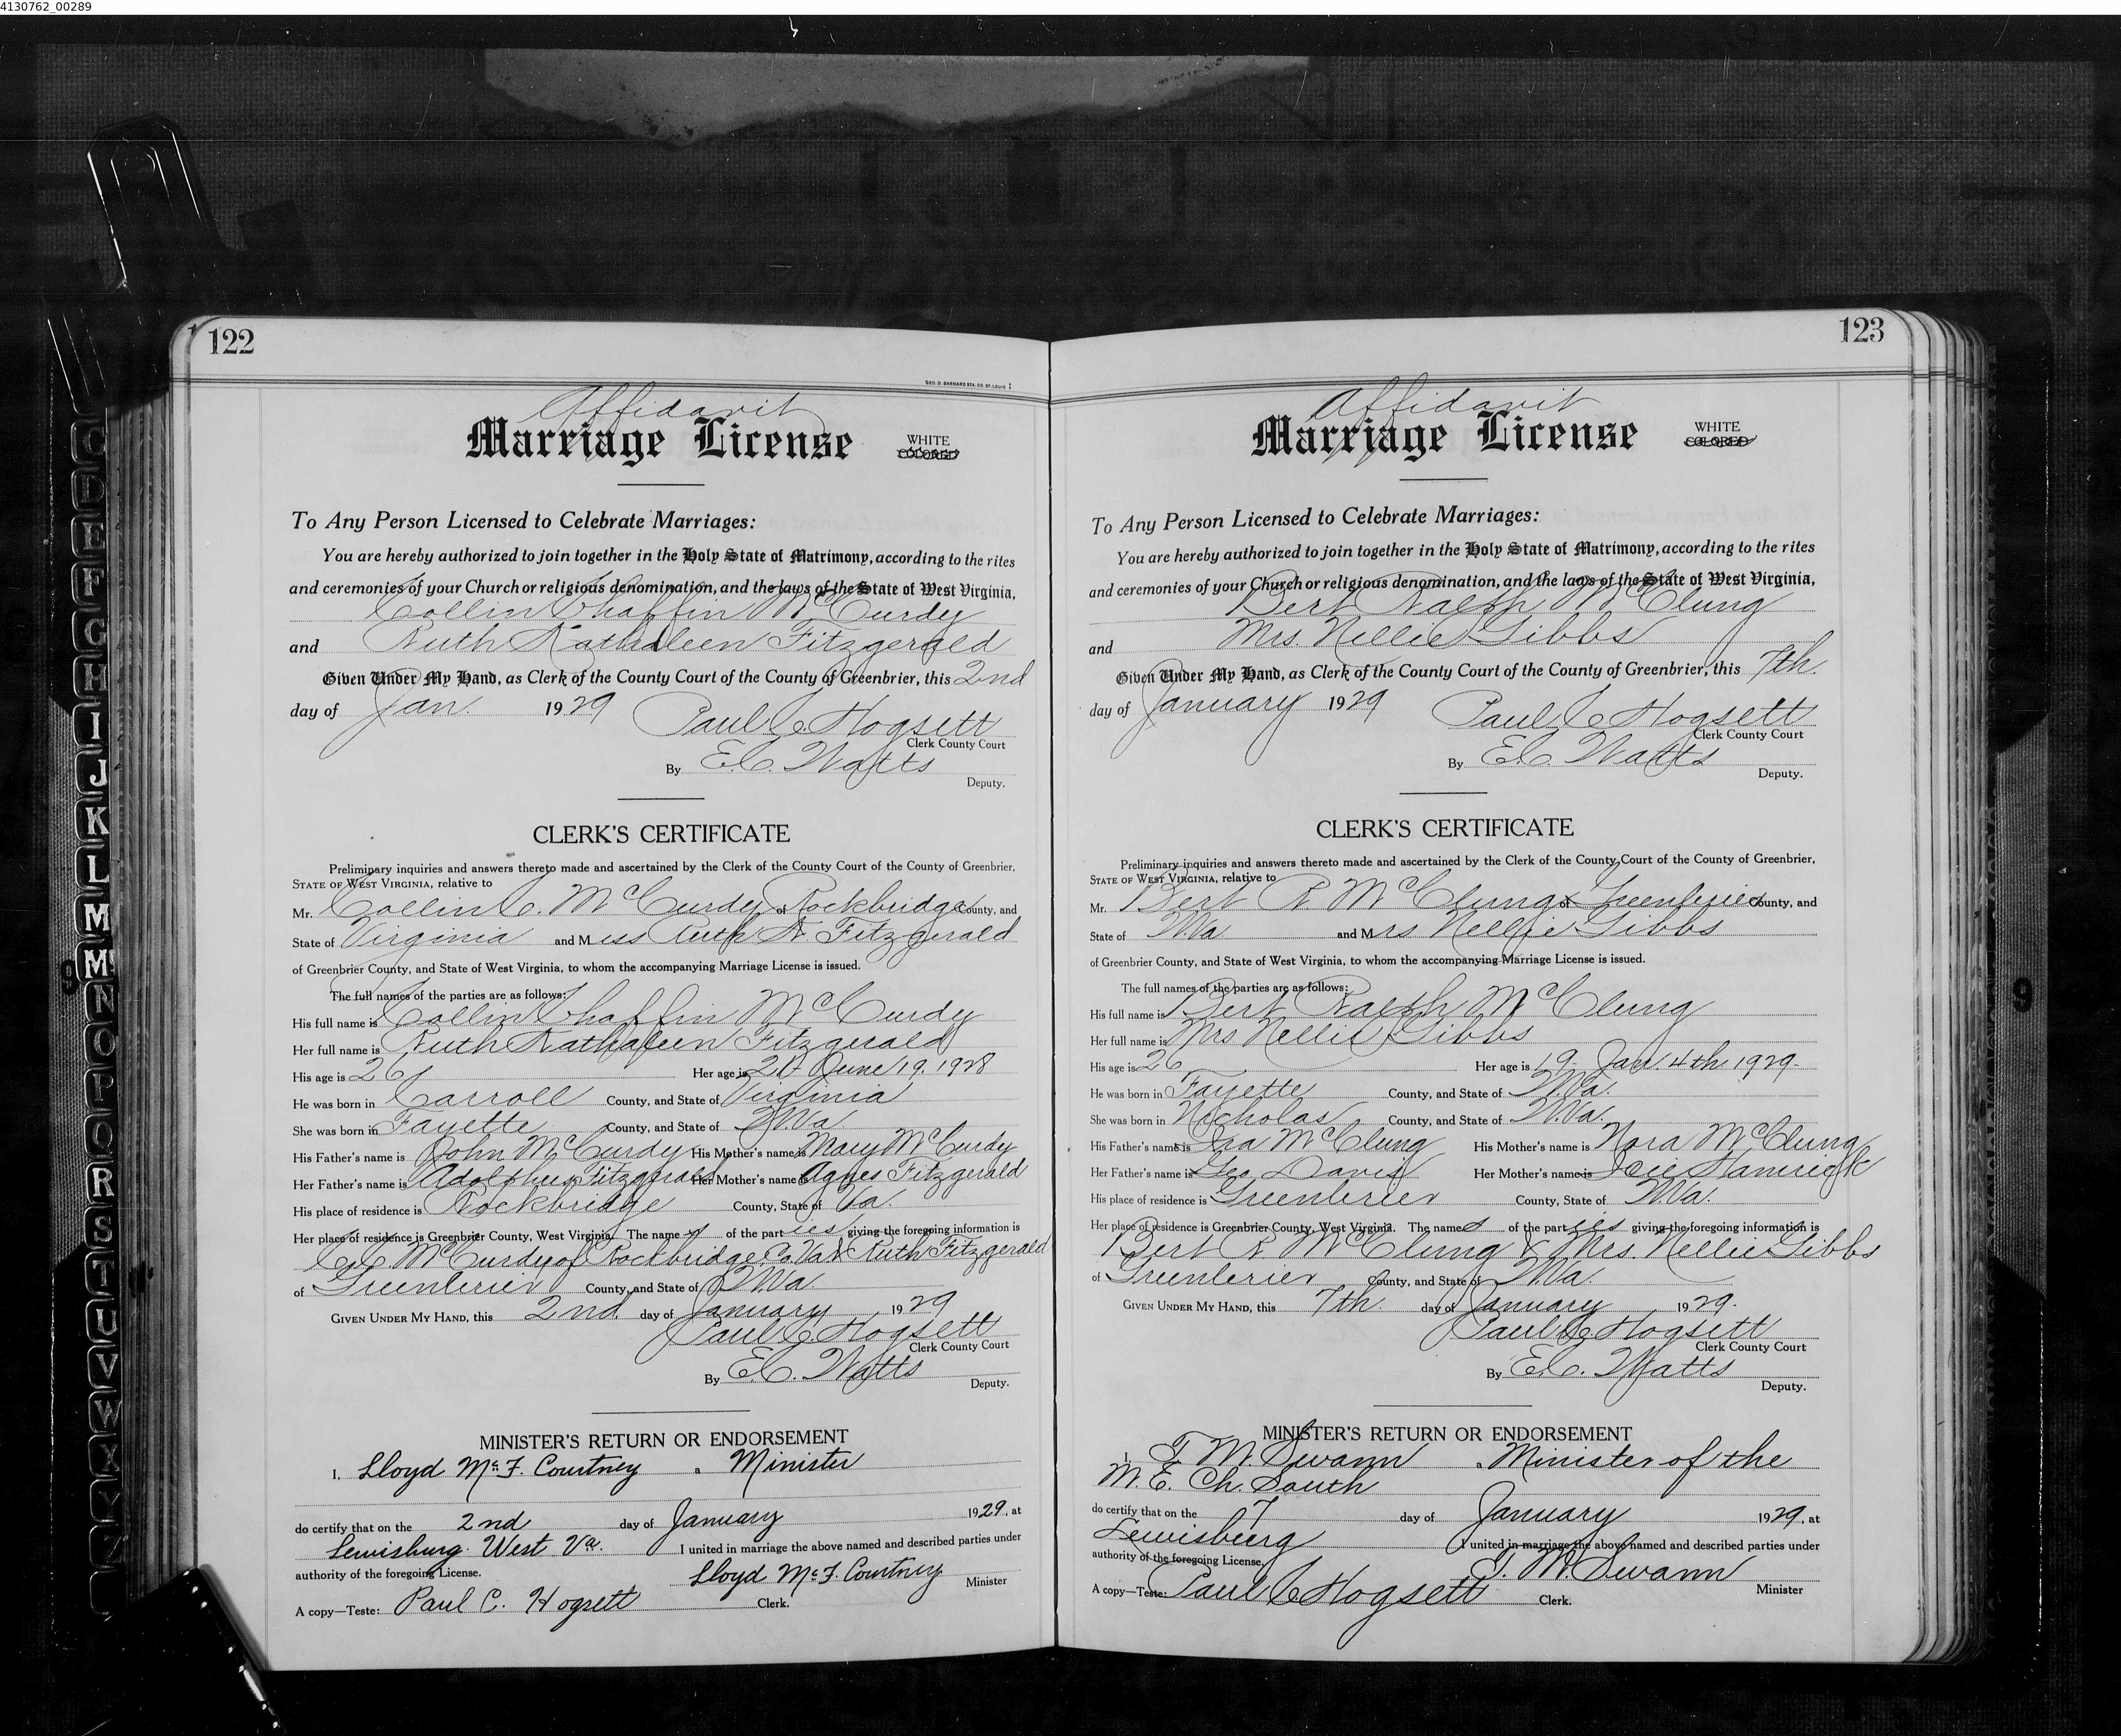 4130762_00289
122
GEO. D. BARNARD STA. CO. ST. LOUIS
Affidavit
Marriage License
WHITE
COLORED
To Any Person Licensed to Celebrate Marriages:
You are hereby authorized to join together in the Holy State of Matrimony, according to the rites
and ceremonies of your Church or religious denomination, and the laws of the State of West Virginia,
Collin Chaffin McCurdy
and Ruth Kathaleen Fitzgerald
Given Under My Hand, as Clerk of the County Court of the County of Greenbrier, this 2nd
day of Jan. 1929 Paul C Hogsett
Clerk County Court
By E.C. Watts
Deputy.
CLERK'S CERTIFICATE
Preliminary inquiries and answers thereto made and ascertained by the Clerk of the County Court of the County of Greenbrier,
STATE OF WEST VIRGINIA, relative to
Mr. Collin C. McCurdy of Rockbridge County, and
State of Virginia and Miss Ruth K. Fitzgerald
of Greenbrier County, and State of West Virginia, to whom the accompanying Marriage License is issued.
The full names of the parties are as follows:
His full name is Collin Chaffin McCurdy
Her full name is Ruth Kathaleen Fitzgerald
His age is 26 Her age is 21 June 19. 1928
He was born in Carroll County, and State of Virginia
She was born in Fayette County, and State of W.Va.
His Father's name is John McCurdy His Mother's name is Mary McCurdy
Her Father's name is Adolphus Fitzgerald Her Mother's name is Agnes Fitzgerald
His place of residence is Rockbridge County, State of Va.
Her place of residence is Greenbrier County, West Virginia. The name s of the part ies giving the foregoing information is
C.C. McCurdy of Rockbridge Co. Va. & Ruth Fitzgerald
of Greenbrier County, and State of W.Va.
GIVEN UNDER MY HAND, this 2nd. day of January 1929
Paul C. Hogsett
Clerk County Court
By E.C. Watts
Deputy.
MINISTER'S RETURN OR ENDORSEMENT
I, Lloyd McF. Courtney a Minister
do certify that on the 2nd day of January 1929, at
Lewisburg West Va. I united in marriage the above named and described parties under
authority of the foregoing License.
Lloyd McF. Courtney Minister
A copy—Teste: Paul C. Hogsett Clerk.
123
Affidavit
Marriage License
WHITE
COLORED
To Any Person Licensed to Celebrate Marriages:
You are hereby authorized to join together in the Holy State of Matrimony, according to the rites
and ceremonies of your Church or religious denomination, and the laws of the State of West Virginia,
Bert Ralph McClung
and Mrs. Nellie Gibbs
Given Under My Hand, as Clerk of the County Court of the County of Greenbrier, this 7th.
day of January 1929 Paul C Hogsett
Clerk County Court
By E.C. Watts
Deputy.
CLERK'S CERTIFICATE
Preliminary inquiries and answers thereto made and ascertained by the Clerk of the County Court of the County of Greenbrier,
STATE OF WEST VIRGINIA, relative to
Mr. Bert R. McClung of Greenbrier County, and
State of W.Va. and Mrs Nellie Gibbs
of Greenbrier County, and State of West Virginia, to whom the accompanying Marriage License is issued.
The full names of the parties are as follows:
His full name is Bert Ralph McClung
Her full name is Mrs Nellie Gibbs
His age is 26 Her age is 19. Jan. 4th 1929.
He was born in Fayette County, and State of W.Va.
She was born in Nicholas County, and State of W.Va.
His Father's name is Ira McClung His Mother's name is Nora McClung
Her Father's name is Geo Davis Her Mother's name is Icie Hamrick
His place of residence is Greenbrier County, State of W.Va.
Her place of residence is Greenbrier County, West Virginia. The name s of the part ies giving the foregoing information is
Bert R McClung & Mrs. Nellie Gibbs
of Greenbrier County, and State of W.Va.
GIVEN UNDER MY HAND, this 7th. day of January 1929.
Paul C. Hogsett
Clerk County Court
By E.C. Watts
Deputy.
MINISTER'S RETURN OR ENDORSEMENT
I, T. M. Swann a Minister of the
M. E. Ch. South
do certify that on the 7 day of January 1929, at
Lewisburg I united in marriage the above named and described parties under
authority of the foregoing License.
T. M. Swann Minister
A copy—Teste: Paul C Hogsett Clerk.
C
D
E
F
G
H
I
J
K
L
M
Mc
N
O
P
Q
R
S
T
U
V
W
X
Y
Z
9
9